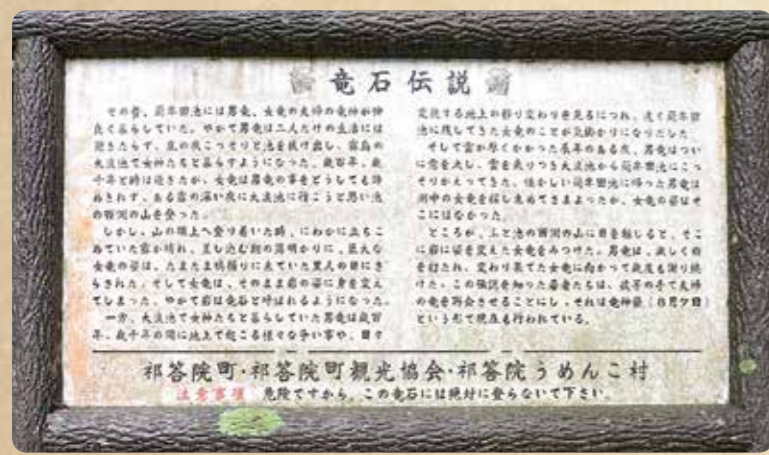 竜石伝説
その昔、藺牟田池には男竜、女竜の夫婦の竜神が仲
良く暮らしていた。やがて男竜は二人だけの生活には
飽きたらず、嵐の夜こっそりと池を抜け出し、霧島の
大浪池で女神たちと暮らすようになった。幾百年、幾
千年と時は過ぎたが、女竜は男竜の事をどうしても諦
めきれず、ある霧の深い夜に大浪池に行こうと思い池
の西側の山を登った。
しかし、山の頂上へ登り着いた時、にわかに立ちこ
めていた霧が晴れ、差し込む朝の薄明かりに、巨大な
女竜の姿は、たまたま鴨猟りに来ていた里人の目にき
らされた。そして女竜は、そのまま岩の姿に身を変え
てしまった。やがて岩は竜石と呼ばれるようになった。
一方、大浪池で女神たちと暮らしていた男竜は幾百
年、幾千年の間に地上で起こる様々な争い事や、日々
変貌する地上の移り変わりを見るにつれ、遠く藺牟田
池に残してきた女竜のことが気掛かりになりだした。
そして雲が厚くかかった辰年のある夜、男竜はつい
に意を決し、雲を飛りつき大浪池から藺牟田池にこっ
そりかえってきた。懐かしい藺牟田池に帰った男竜は
湖中の女竜を探し求めてさまよったが、女竜の姿はそ
こにはなかった。
ところが、ふと池の西側の山に目を転じると、そこ
に岩に姿を変えた女竜をみつけた。男竜は、激しく胸
を打たれ、変わり果てた女竜に向かって幾度も謝り続
けた。この伝説を知った若者たちは、彼等の手で夫婦
の竜を再会させることにし、それは竜神祭（８月夕日）
という形で現在も行われている。
祁答院町・祁答院町観光協会・祁答院うめんこ村
注意事項 危険ですから、この竜石には絶対に登らないで下さい。